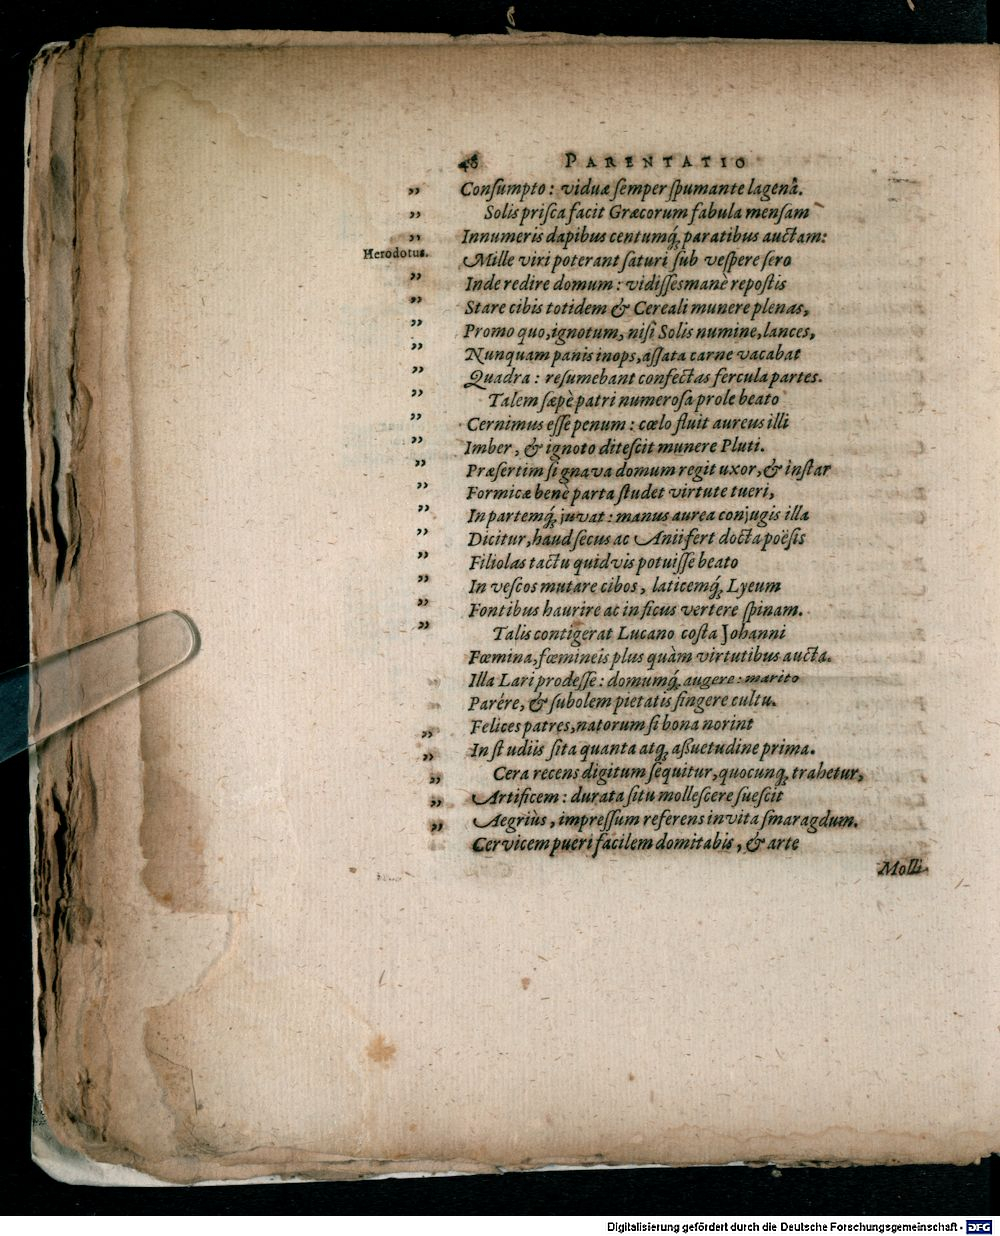 46 PARENTATIO
„ Conſumpto: viduæ ſemper ſpumante lagenâ.
„ Solis priſca facit Græcorum fabula menſam
„ Innumeris dapibus centumq́; paratibus auctam:
Herodotus. Mille viri poterant ſaturi ſub veſpere ſero
„ Inde redire domum: vidiſſes manè repoſtis
„ Stare cibis totidem & Cereali munere plenas,
„ Promo quo, ignotum, niſi Solis numine, lances,
„ Nunquam panis inops, aſſata carne vacabat
„ Quadra: reſumebant confectas fercula partes.
„ Talem ſæpè patri numeroſa prole beato
„ Cernimus eſſe penum: cœlo fluit aureus illi
„ Imber, & ignoto diteſcit munere Pluti.
„ Præſertim ſi gnava domum regit uxor, & inſtar
„ Formicæ benè parta ſtudet virtute tueri,
„ In partemq́; juvat: manus aurea conjugis illa
„ Dicitur, haud ſecus ac Anii fert docta poëſis
„ Filiolas tactu quidvis potuiſſe beato
„ In veſcos mutare cibos, laticemq́; Lyeum
„ Fontibus haurire ac in ficus vertere ſpinam.
„ Talis contigerat Lucano coſta Johanni
Fœmina, fœmineis plus quàm virtutibus aucta.
„ Illa Lari prodeſſe: domumq́; augere: marito
„ Parére, & ſubolem pietatis fingere cultu.
„ Felices patres, natorum ſi bona norint
„ In ſtudiis ſita quanta atq; aßuetudine prima.
„ Cera recens digitum ſequitur, quocunq; trahetur,
„ Artificem: durata ſitu molleſcere ſueſcit
„ Aegriùs, impreſſum referens invita ſmaragdum.
Cervicem pueri facilem domitabis, & arte
Molli
Digitalisierung gefördert durch die Deutsche Forschungsgemeinschaft - DFG